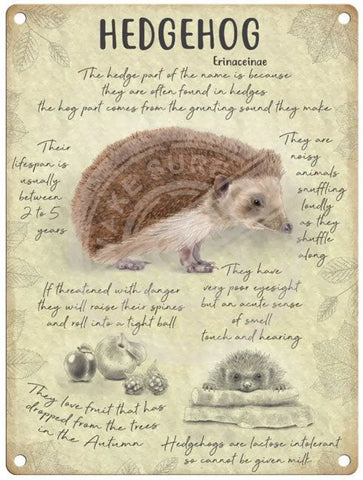 HEDGEHOG
Erinaceinae
The hedge part of the name is because
they are often found in hedges
the hog part comes from the grunting sound they make
Their
lifespan is
usually
between
2 to 5
years
They are
noisy
animals
snuffling
loudly
as they
shuffle
along
They have
very poor eyesight
but an acute sense
of smell
touch and hearing
If threatened with danger
they will raise their spines
and roll into a tight ball
They love fruit that has
dropped from the trees
in the Autumn
Hedgehogs are lactose intolerant
so cannot be given milk